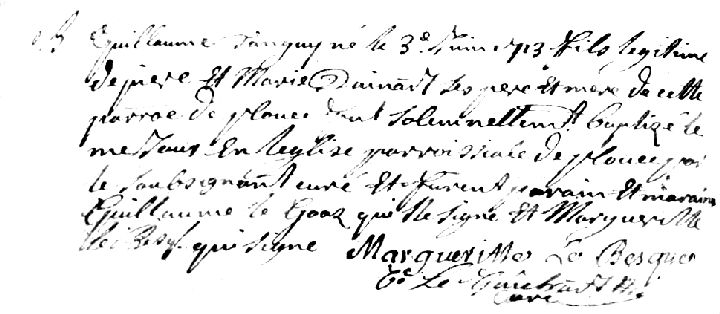 Guillaume Tanguy né le 3e Juin 1713 fils legitime
de piere Et Marie ses pere Et mere de cette
parroe de plouec dont solemnellemt baptizé le
mê Jour En leglise parroissiale de plouec par
le soubsignant curé Et furent parain Et maraine
Guillaume le Goaz qui ne signe Et Margueritte
le Besq. qui signe Margueritte Le Besque
Le
curé